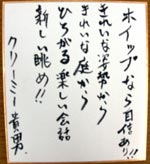 ホイップなら自信あり!!
きれいな姿勢から
きれいな庭から
ひろがる楽しい会話
新しい眺め!!
クリーミー貴男